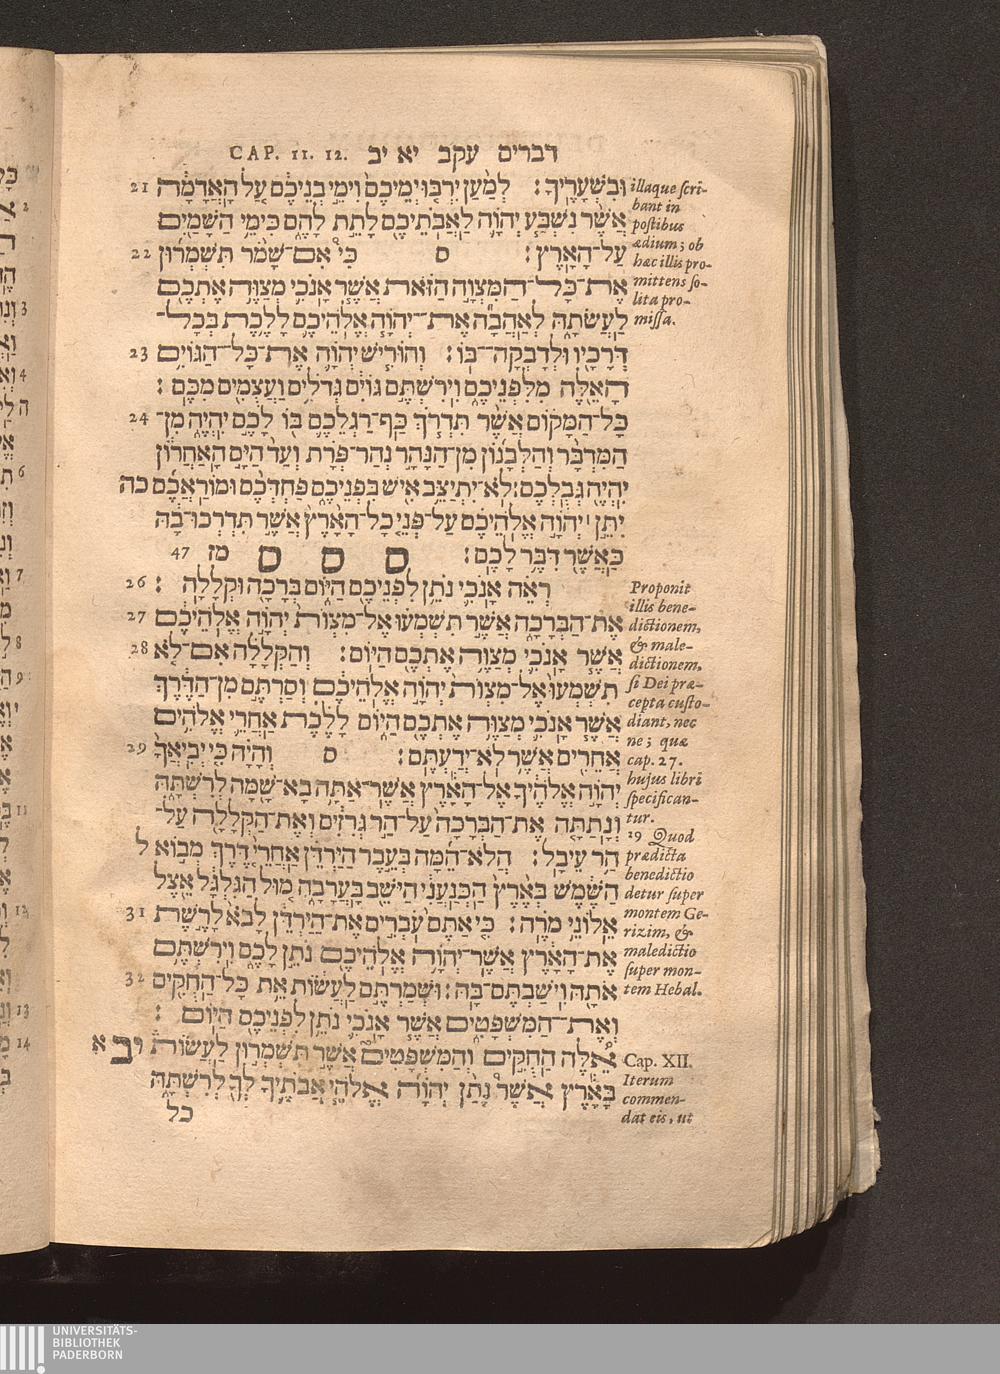 דברים עקב יא יב CAP. 11. 12.
וּבִשְׁעָרֶיךָ: לְמַעַן יִרְבּוּ יְמֵיכֶם וִימֵי בְנֵיכֶם עַל הָאֲדָמָה 21
אֲשֶׁר נִשְׁבַּע יְהוָֹה לַאֲבֹתֵיכֶם לָתֵת לָהֶם כִּימֵי הַשָּׁמַיִם
עַל־הָאָרֶץ: ס כִּי אִם־שָׁמֹר תִּשְׁמְרוּן 22
אֶת־כָּל־הַמִּצְוָה הַזֹּאת אֲשֶׁר אָנֹכִי מְצַוֶּה אֶתְכֶם
לַעֲשֹׂתָהּ לְאַהֲבָה אֶת־יְהוָֹה אֱלֹהֵיכֶם לָלֶכֶת בְּכָל־
דְּרָכָיו וּלְדָבְקָה־בוֹ: וְהוֹרִישׁ יְהוָֹה אֶת־כָּל־הַגּוֹיִם 23
הָאֵלֶּה מִלִּפְנֵיכֶם וִירִשְׁתֶּם גּוֹיִם גְּדֹלִים וַעֲצֻמִים מִכֶּם:
כָּל־הַמָּקוֹם אֲשֶׁר תִּדְרֹךְ כַּף־רַגְלְכֶם בּוֹ לָכֶם יִהְיֶה מִן־ 24
הַמִּדְבָּר וְהַלְּבָנוֹן מִן־הַנָּהָר נְהַר־פְּרָת וְעַד הַיָּם הָאַחֲרוֹן
יִהְיֶה גְּבֻלְכֶם: לֹא־יִתְיַצֵּב אִישׁ בִּפְנֵיכֶם פַּחְדְּכֶם וּמוֹרַאֲכֶם כה
יִתֵּן ׀ יְהוָֹה אֱלֹהֵיכֶם עַל־פְּנֵי כָל־הָאָרֶץ אֲשֶׁר תִּדְרְכוּ־בָהּ
כַּאֲשֶׁר דִּבֶּר לָכֶם: ס ס ס מז 47
רְאֵה אָנֹכִי נֹתֵן לִפְנֵיכֶם הַיּוֹם בְּרָכָה וּקְלָלָה: 26
אֶת־הַבְּרָכָה אֲשֶׁר תִּשְׁמְעוּ אֶל־מִצְוֹת יְהוָֹה אֱלֹהֵיכֶם 27
אֲשֶׁר אָנֹכִי מְצַוֶּה אֶתְכֶם הַיּוֹם: וְהַקְּלָלָה אִם־לֹא 28
תִשְׁמְעוּ אֶל־מִצְוֹת יְהוָֹה אֱלֹהֵיכֶם וְסַרְתֶּם מִן־הַדֶּרֶךְ
אֲשֶׁר אָנֹכִי מְצַוֶּה אֶתְכֶם הַיּוֹם לָלֶכֶת אַחֲרֵי אֱלֹהִים
אֲחֵרִים אֲשֶׁר לֹא־יְדַעְתֶּם: ס וְהָיָה כִּי יְבִיאֲךָ 29
יְהוָֹה אֱלֹהֶיךָ אֶל־הָאָרֶץ אֲשֶׁר־אַתָּה בָא־שָׁמָּה לְרִשְׁתָּהּ
וְנָתַתָּה אֶת־הַבְּרָכָה עַל־הַר גְּרִזִים וְאֶת־הַקְּלָלָה עַל־
הַר עֵיבָל: הֲלֹא־הֵמָּה בְּעֵבֶר הַיַּרְדֵּן אַחֲרֵי דֶּרֶךְ מְבוֹא ל
הַשֶּׁמֶשׁ בְּאֶרֶץ הַכְּנַעֲנִי הַיֹּשֵׁב בָּעֲרָבָה מוּל הַגִּלְגָּל אֵצֶל
אֵלוֹנֵי מֹרֶה: כִּי אַתֶּם עֹבְרִים אֶת־הַיַּרְדֵּן לָבֹא לָרֶשֶׁת 31
אֶת־הָאָרֶץ אֲשֶׁר־יְהוָֹה אֱלֹהֵיכֶם נֹתֵן לָכֶם וִירִשְׁתֶּם
אֹתָהּ וִישַׁבְתֶּם־בָּהּ: וּשְׁמַרְתֶּם לַעֲשׂוֹת אֵת כָּל־הַחֻקִּים 32
וְאֶת־הַמִּשְׁפָּטִים אֲשֶׁר אָנֹכִי נֹתֵן לִפְנֵיכֶם הַיּוֹם:
אֵלֶּה הַחֻקִּים וְהַמִּשְׁפָּטִים אֲשֶׁר תִּשְׁמְרוּן לַעֲשׂוֹת יב א
בָּאָרֶץ אֲשֶׁר נָתַן יְהוָֹה אֱלֹהֵי אֲבֹתֶיךָ לְךָ לְרִשְׁתָּהּ
כל
illaque scri-
bant in
postibus
ædium; ob
hæc illis pro-
mittens so-
lita pro-
missa.
Proponit
illis bene-
dictionem,
& male-
dictionem,
si Dei præ-
cepta custo-
diant, nec
ne; quæ
cap. 27.
hujus libri
specifican-
tur.
29 Quod
prædicta
benedictio
detur super
montem Ge-
rizim, &
maledictio
super mon-
tem Hebal.
Cap. XII.
Iterum
commen-
dat eis, ut
2
3
4
ה
6
7
8
9
11
12
13
14
UNIVERSITÄTS-
BIBLIOTHEK
PADERBORN